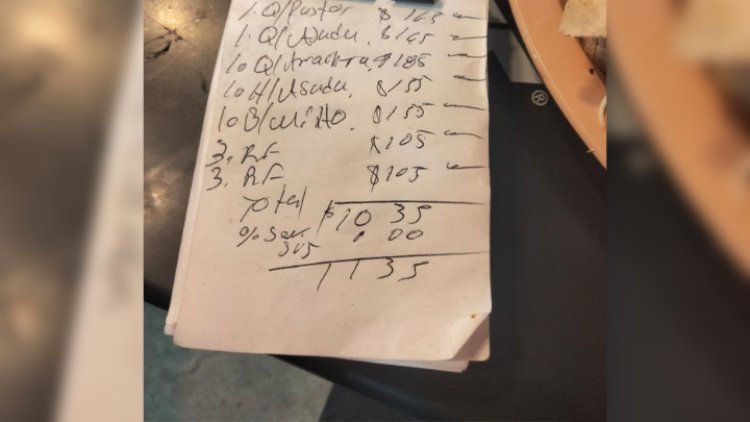 1. Q/Pastor $165
1. Q/Asada. $165
1o Q/Arachera, $185
1o H/Asada. $155
1o B/Mixto. $155
3. RF $105
3. RF $105
Total $1035
% Ser. 100
315
1135
®